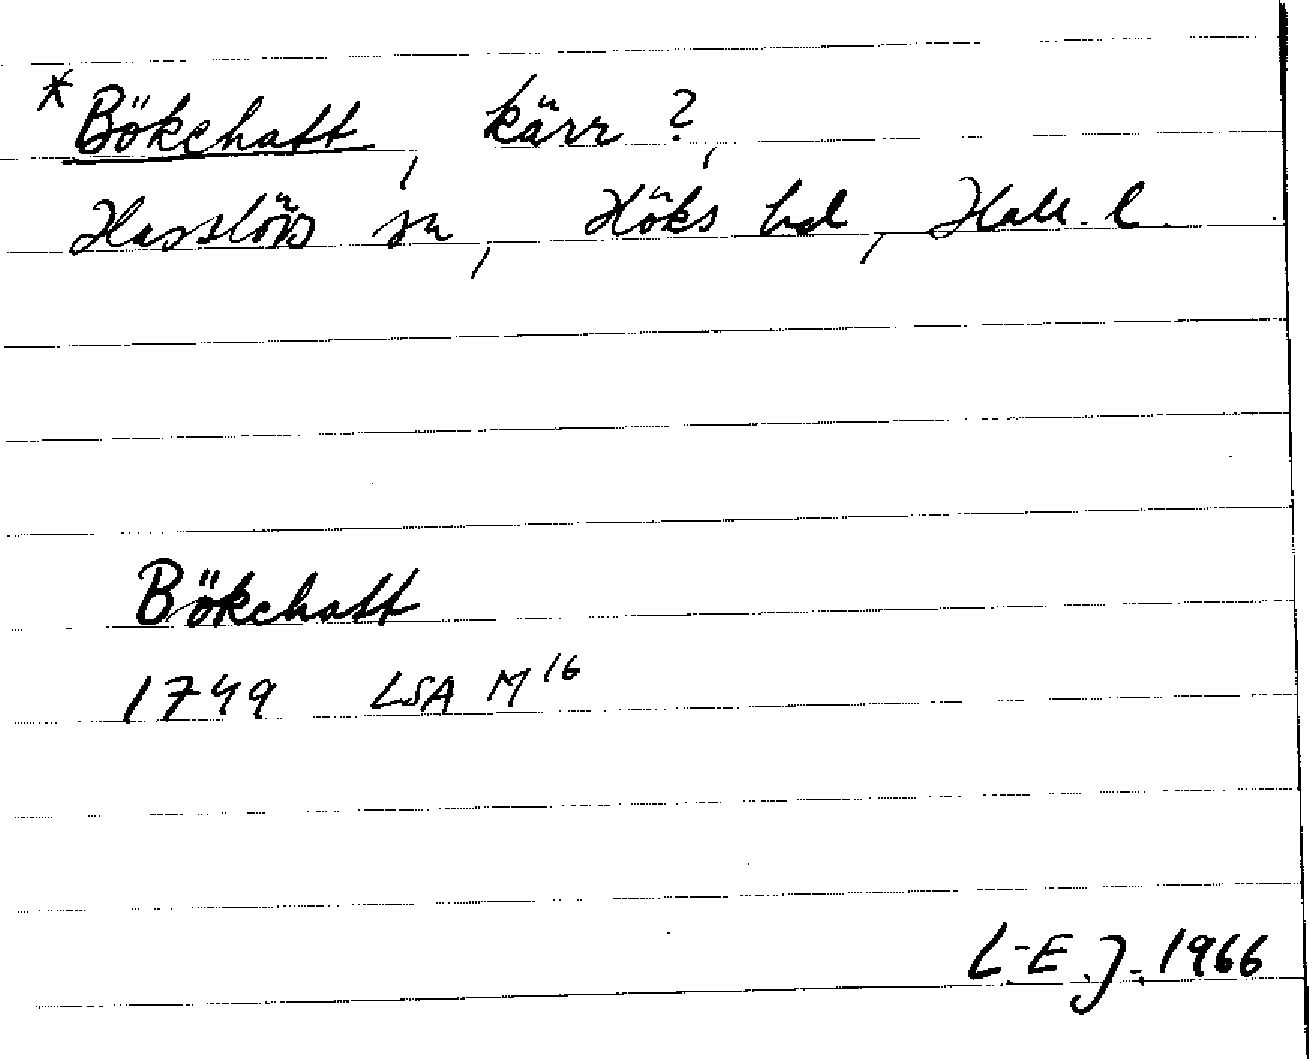 *Bökehatt, kärr?,
Hasslövs sn, Höks hd, Hall. l.
Bökehatt
1749 LSA M16
L-E.J. 1966